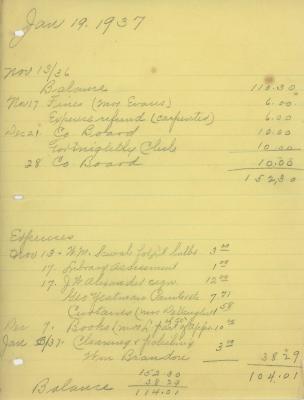 Jan 19, 1937
Nov 13/36
Balance 110.30
Nov 17 Fines (Mrs Evans) 6.00
Expense refund (carpenter) 6.00
Dec 21 Co. Board 10.00
Fortnightly Club 10.00
28 Co Board 10.00
152.30
Expenses
Nov 13 - W.M. for bulbs 3.00
17. Library Assessment 1.00
17. J.W. Alexander sign 12.00
Geo Yeatman 7.71
Curtains (Mrs 1.58
Dec 7. Books (Mrs part of appr. 10.00
Jan 5/37. Cleaning & polishing 3.00
Wm Brandon 38.29
152.30 104.01
38.29
Balance 114.01